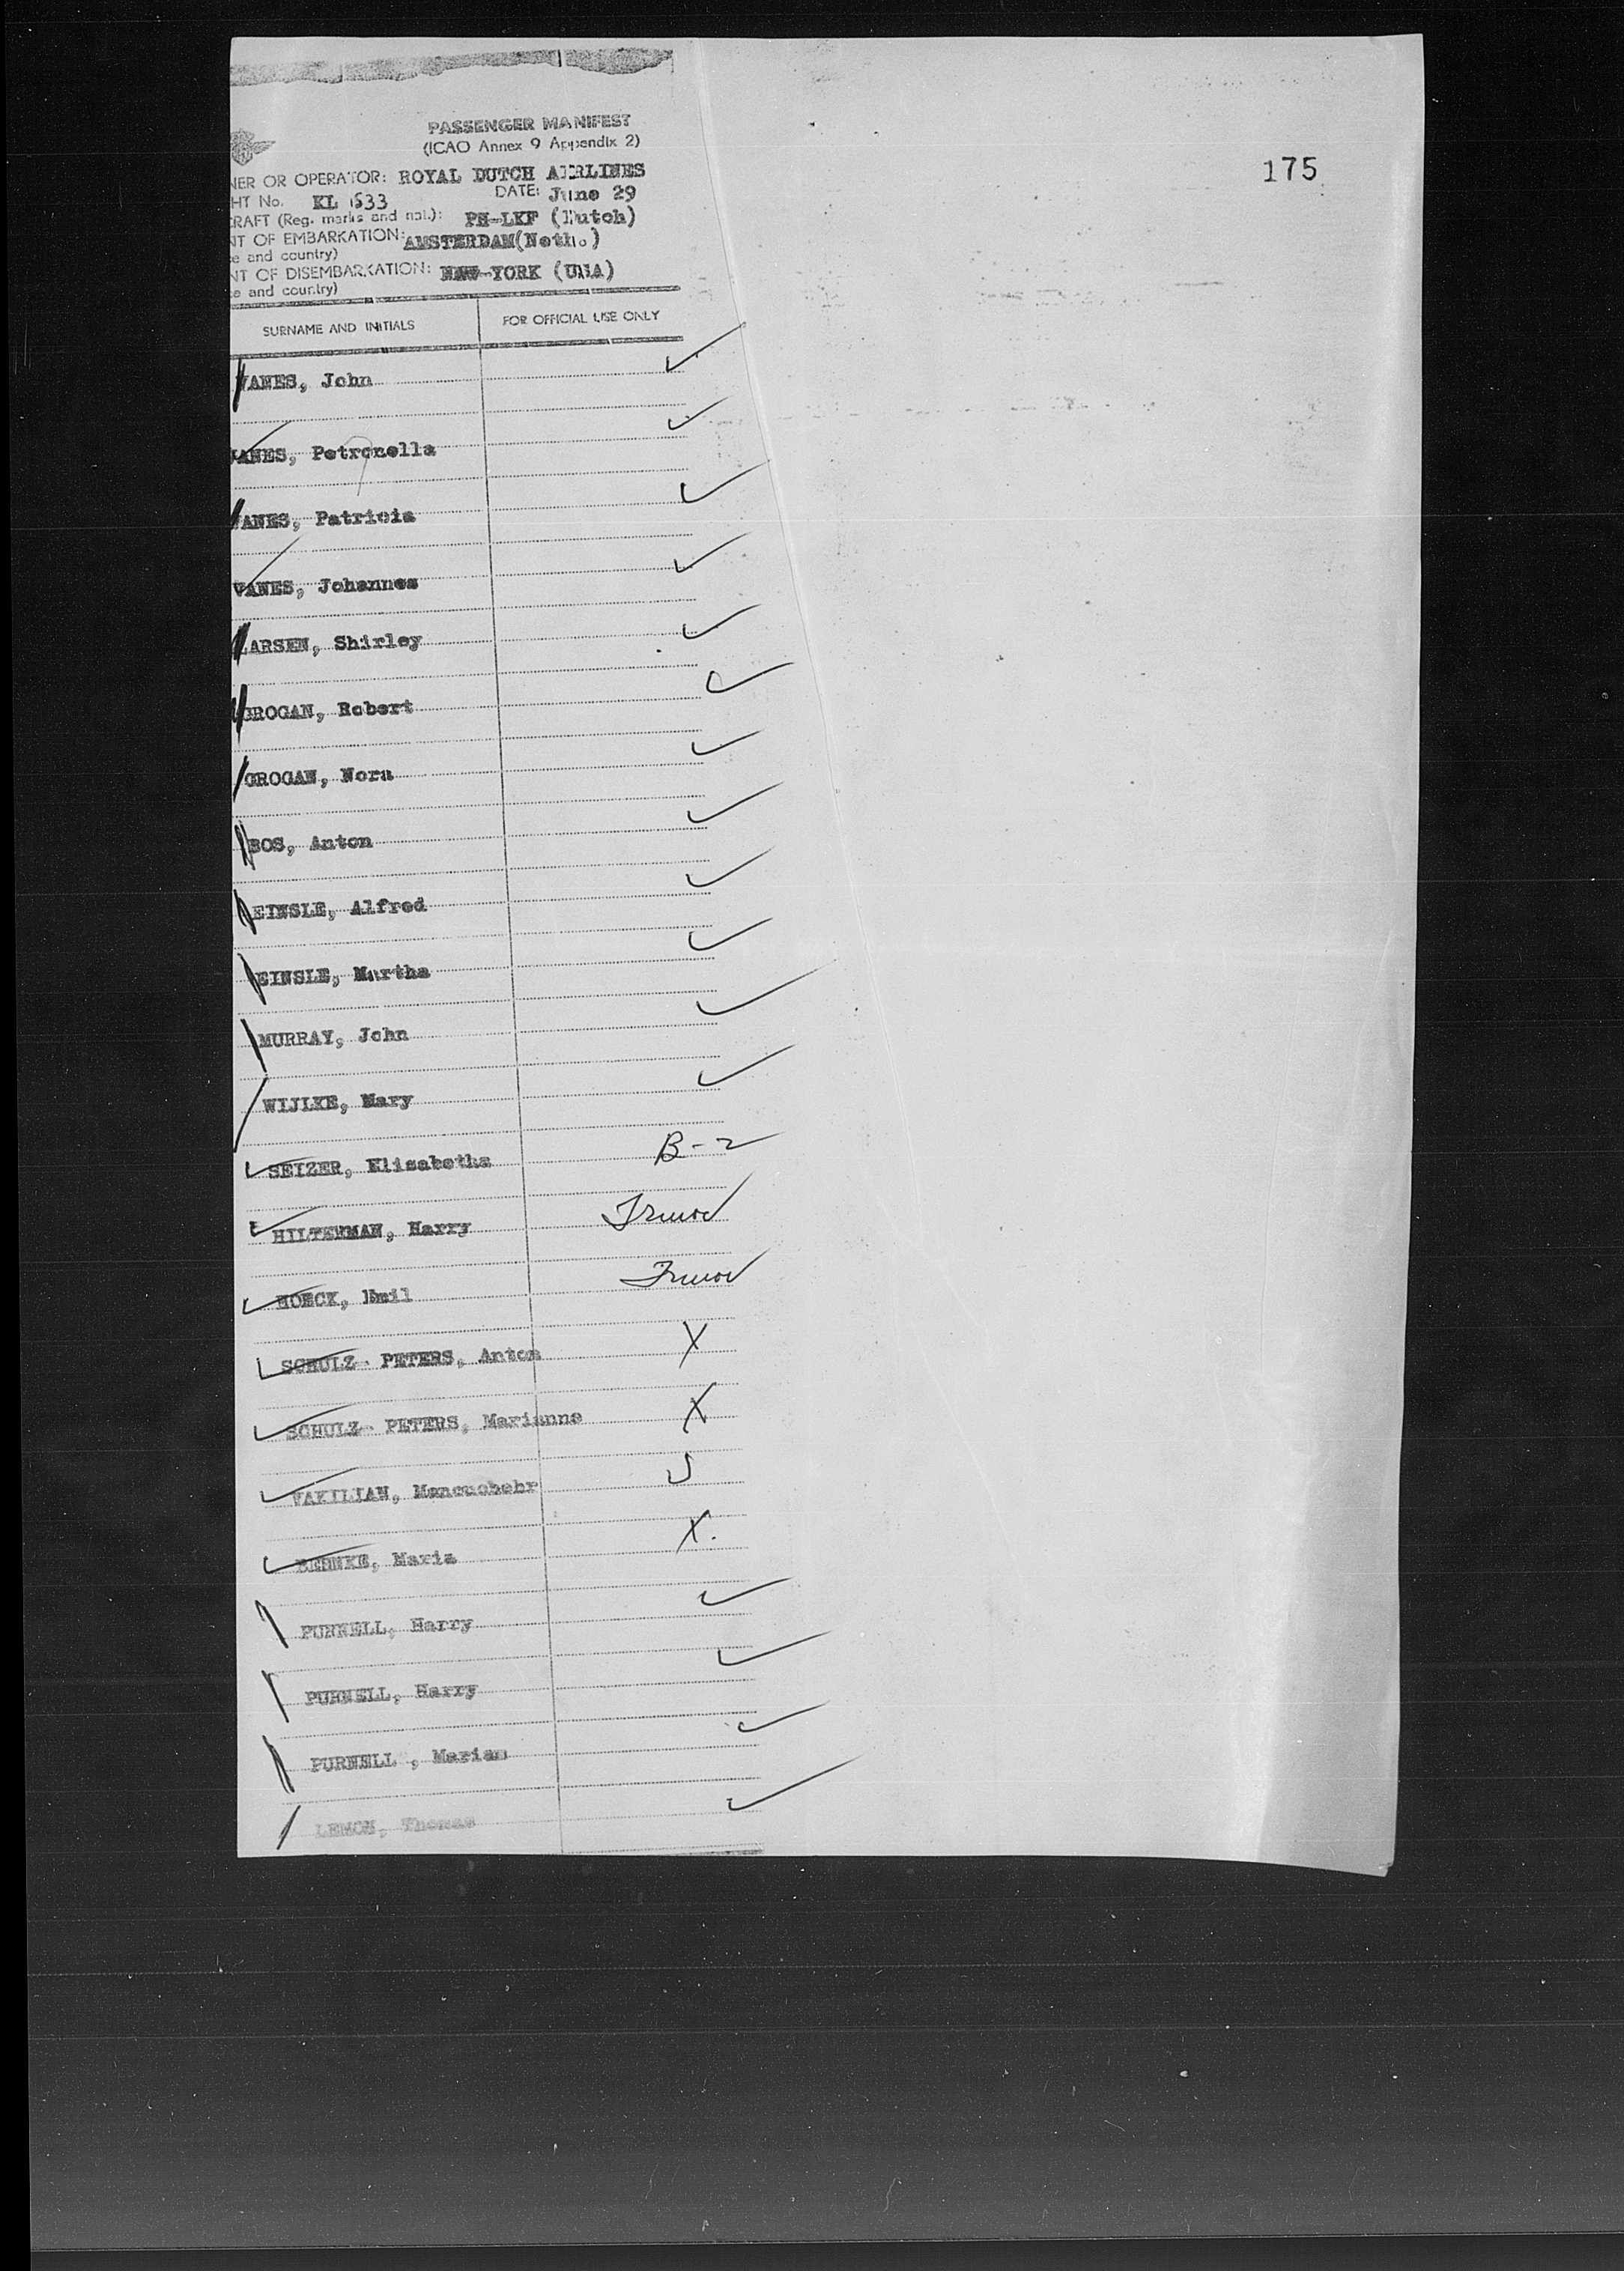 PASSENGER MANIFEST
(ICAO Annex 9 Appendix 2)
175
NER OR OPERATOR: ROYAL DUTCH AIRLINES
HT No. KL 633 DATE: June 29
RAFT (Reg. marks and nat.): PH-LKF (Dutch)
NT OF EMBARKATION: AMSTERDAM(Neth.)
e and country)
NT OF DISEMBARKATION: NEW-YORK (USA)
e and country)
SURNAME AND INITIALS FOR OFFICIAL USE ONLY
VANES, John
VANES, Petronella
VANES, Patricia
VANES, Johannes
LARSEN, Shirley
GROGAN, Robert
GROGAN, Nora
BOS, Anton
EINSLE, Alfred
EINSLE, Martha
MURRAY, John
WIJLKE, Mary
SEIZER, Elisabetha B-2
HILTERMAN, Harry
HOECK, Emil
SCHULZ- PETERS, Anton X
SCHULZ- PETERS, Marianne X
VAKILIAN,
BEHNKE, Maria X.
PURNELL, Harry
PURNELL, Harry
PURNELL, Marian
LEMON, Thomas